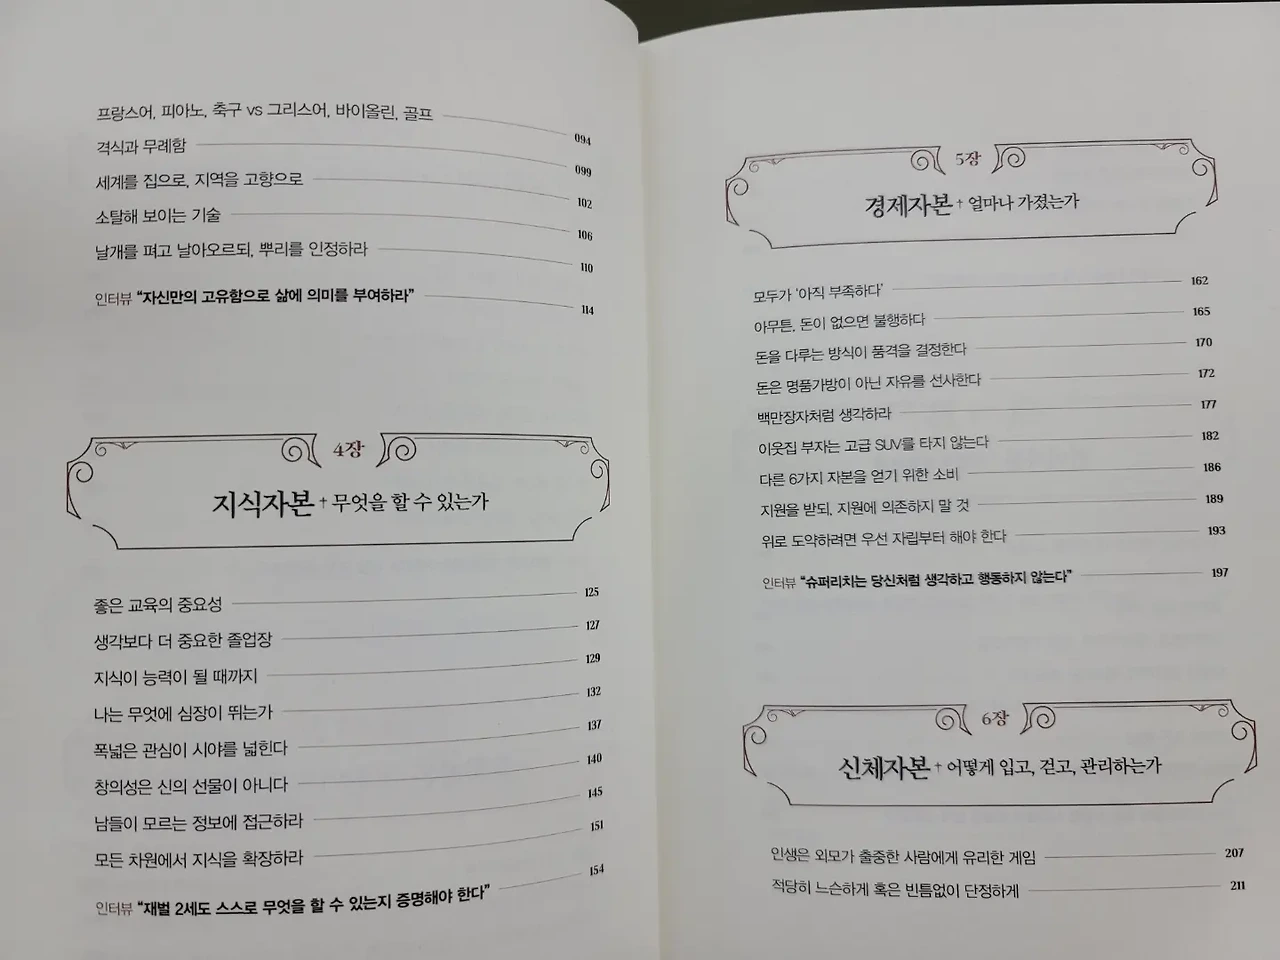 프랑스어, 피아노, 축구 vs 그리스어, 바이올린, 골프 094
격식과 무례함 099
세계를 집으로, 지역을 고향으로 102
소탈해 보이는 기술 106
날개를 펴고 날아오르되, 뿌리를 인정하라 110
인터뷰 “자신만의 고유함으로 삶에 의미를 부여하라” 114
4장
지식자본 † 무엇을 할 수 있는가
좋은 교육의 중요성 125
생각보다 더 중요한 졸업장 127
지식이 능력이 될 때까지 129
나는 무엇에 심장이 뛰는가 132
폭넓은 관심이 시야를 넓힌다 137
창의성은 신의 선물이 아니다 140
남들이 모르는 정보에 접근하라 145
모든 차원에서 지식을 확장하라 151
인터뷰 “재벌 2세도 스스로 무엇을 할 수 있는지 증명해야 한다” 154
5장
경제자본 † 얼마나 가졌는가
모두가 ‘아직 부족하다’ 162
아무튼, 돈이 없으면 불행하다 165
돈을 다루는 방식이 품격을 결정한다 170
돈은 명품가방이 아닌 자유를 선사한다 172
백만장자처럼 생각하라 177
이웃집 부자는 고급 SUV를 타지 않는다 182
다른 6가지 자본을 얻기 위한 소비 186
지원을 받되, 지원에 의존하지 말 것 189
위로 도약하려면 우선 자립부터 해야 한다 193
인터뷰 “슈퍼리치는 당신처럼 생각하고 행동하지 않는다” 197
6장
신체자본 † 어떻게 입고, 걷고, 관리하는가
인생은 외모가 출중한 사람에게 유리한 게임 207
적당히 느슨하게 혹은 빈틈없이 단정하게 211